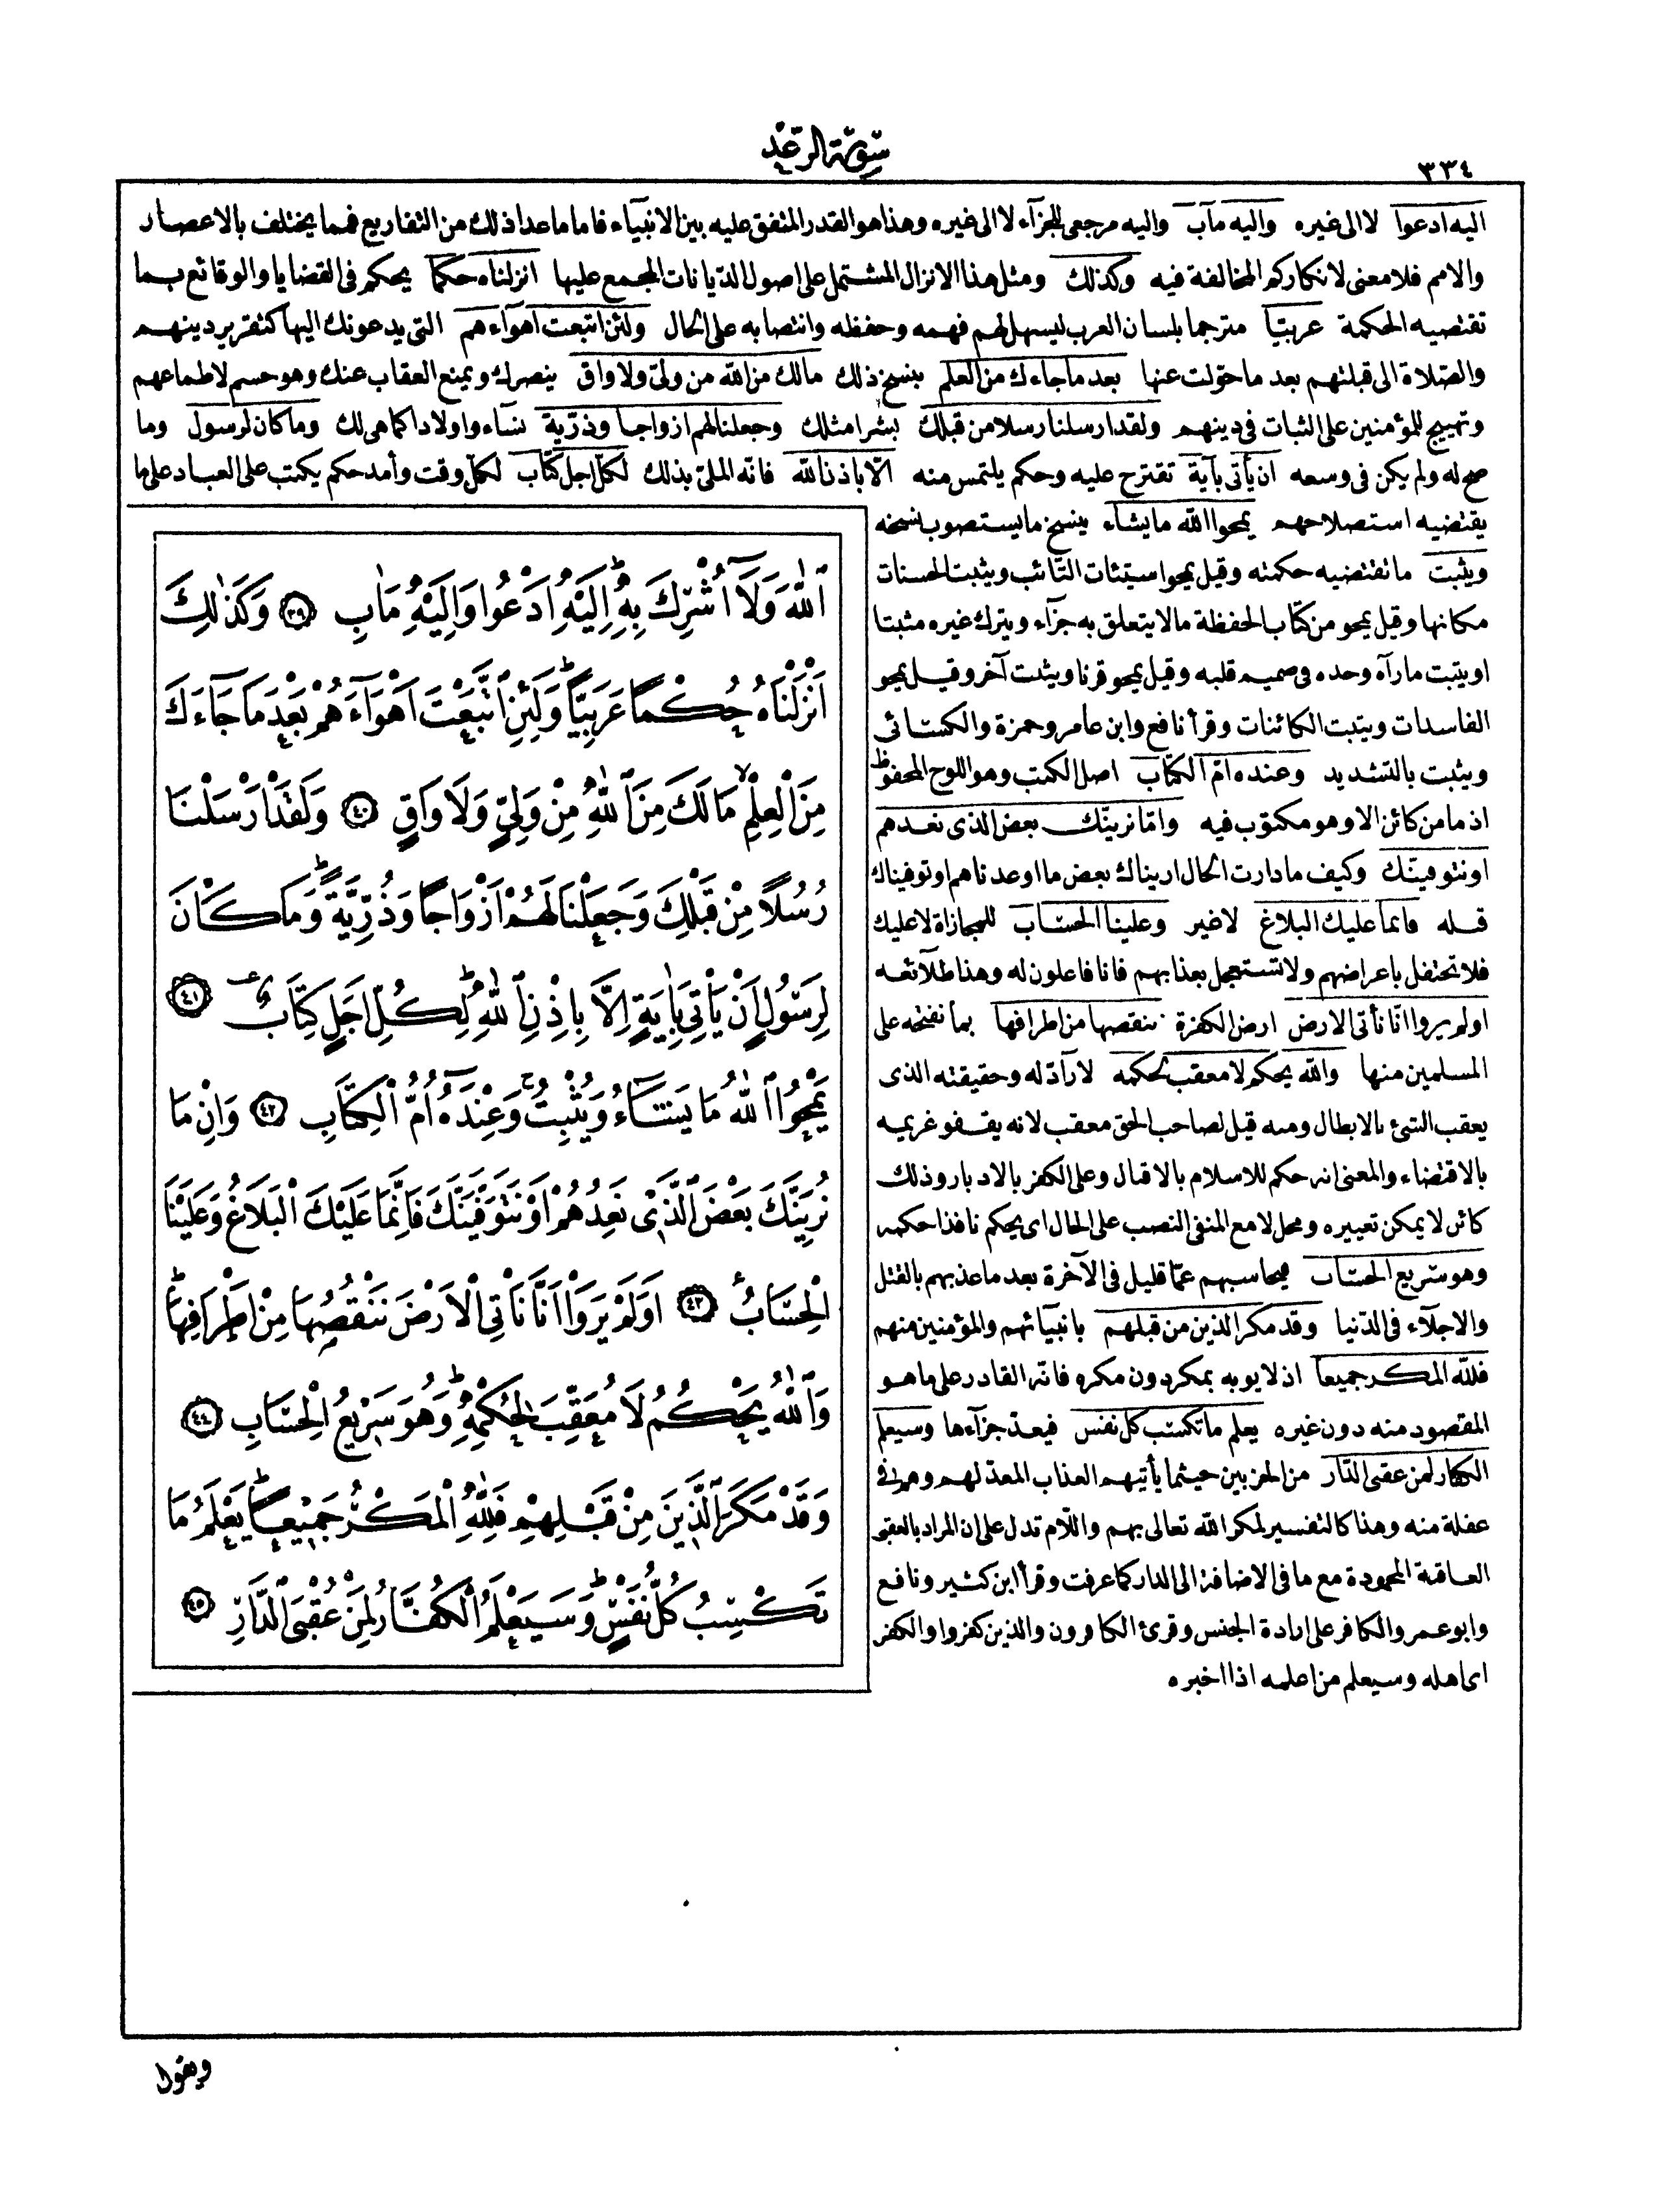 سورة الرعد
٣٣٤
اليه ادعوا لا الى غيره واليه مآب واليه مرجعى للجزآء لا الى غيره وهذا هو القدر المتفق عليه بين الانبيآء فاما ما عدا ذلك من التفاريع فمما يختلف بالاعصار
والامم فلا معنى لانكاركم المخالفة فيه وكذلك ومثل هذا الانزال المشتمل على اصول الديانات المجمع عليها انزلناه حكما يحكم فى القضايا والوقائع بما
تقتضيه الحكمة عربيا مترجما بلسان العرب ليسهل لهم فهمه وحفظه وانتصابه على الحال ولئن اتبعت اهواءهم التى يدعونك اليها كتقرير دينهم
والصلاة الى قبلتهم بعد ما حولت عنها بعد ما جاءك من العلم بنسخ ذلك مالك من الله من ولى ولا واق ينصرك ويمنع العقاب عنك وهو حسم لاطماعهم
وتهييج للمؤمنين على الثبات فى دينهم ولقد ارسلنا رسلا من قبلك بشرا مثلك وجعلنا لهم ازواجا وذرية نسآء واولادا كما هى لك وما كان لرسول وما
صح له ولم يكن فى وسعه ان يأتى بآية تقترح عليه وحكم يلتمس منه الا باذن الله فانه الملئ بذلك لكل اجل كتاب لكل وقت وأمد حكم يكتب على العباد على ما
يقتضيه استصلاحهم يمحوا الله ما يشاء ينسخ ما يستصوب نسخه
ويثبت ما تقتضيه حكمته وقيل يمحوا سيئات التائب ويثبت الحسنات
مكانها وقيل يمحو من كتاب الحفظة مالا يتعلق به جزآء ويترك غيره مثبتا
او يثبت مارآه وحده فى صميم قلبه وقيل يمحو قرنا ويثبت آخر وقيل يمحو
الفاسدات ويثبت الكائنات وقرأ نافع وابن عامر وحمزة والكسائى
ويثبت بالتشديد وعنده ام الكتاب اصل الكتب وهو اللوح المحفوظ
اذ ما من كائن الا وهو مكتوب فيه واما نرينك بعض الذى نعدهم
او نتوفينك وكيف ما دارت الحال اريناك بعض ما اوعدناهم او توفيناك
قبله فانما عليك البلاغ لا غير وعلينا الحساب للمجازاة لا عليك
فلا تحتفل باعراضهم ولا تستعجل بعذابهم فانا فاعلون له وهذا طلآئعه
اولم يروا انا نأتى الارض ارض الكفرة ننقصها من اطرافها بما نفتحه على
المسلمين منها والله يحكم لا معقب لحكمه لا رآد له وحقيقته الذى
يعقب الشئ بالابطال ومنه قيل لصاحب الحق معقب لانه يقفو غريمه
بالاقتضاء والمعنى انه حكم للاسلام بالاقبال وعلى الكفر بالادبار وذلك
كائن لا يمكن تغييره ومحل لا مع المنفى النصب على الحال اى يحكم نافذا حكمه
وهو سريع الحساب فيحاسبهم عما قليل فى الآخرة بعد ما عذبهم بالقتل
والاجلآء فى الدنيا وقد مكر الذين من قبلهم بانبيآئهم والمؤمنين منهم
فلله المكر جميعا اذ لا يوبه بمكر دون مكره فانه القادر على ما هو
المقصود منه دون غيره يعلم ما تكسب كل نفس فيعد جزآءها وسيعلم
الكفار لمن عقبى الدار من الحزبين حيثما يأتيهم العذاب المعد لهم وهم فى
غفلة منه وهذا كالتفسير لمكر الله تعالى بهم واللام تدل على ان المراد بالعقبى
العاقبة المحمودة مع ما فى الاضافة الى الدار كما عرفت وقرأ ابن كثير ونافع
وابو عمرو والكافر على ارادة الجنس وقرئ الكافرون والذين كفروا والكفر
اى اهله وسيعلم من اعلمه اذا اخبره
اَللّٰهَ وَلَآ اُشْرِكَ بِهٖ اِلَيْهِ اَدْعُوا وَاِلَيْهِ مَاٰبِ ﴿٣٩﴾ وَكَذٰلِكَ
اَنْزَلْنَاهُ حُكْمًا عَرَبِيًّا وَلَئِنِ اتَّبَعْتَ اَهْوَآءَهُمْ بَعْدَمَا جَآءَكَ
مِنَ الْعِلْمِ مَالَكَ مِنَ اللّٰهِ مِنْ وَلِيٍّ وَلَا وَاقٍ ﴿٤٠﴾ وَلَقَدْ اَرْسَلْنَا
رُسُلًا مِنْ قَبْلِكَ وَجَعَلْنَا لَهُمْ اَزْوَاجًا وَذُرِّيَّةً وَمَا كَانَ
لِرَسُولٍ اَنْ يَأْتِيَ بِاٰيَةٍ اِلَّا بِاِذْنِ اللّٰهِ لِكُلِّ اَجَلٍ كِتَابٌ ﴿٤١﴾
يَمْحُوا اللّٰهُ مَا يَشَآءُ وَيُثْبِتُ وَعِنْدَهُٓ اُمُّ الْكِتَابِ ﴿٤٢﴾ وَاِنْ مَا
نُرِيَنَّكَ بَعْضَ الَّذِي نَعِدُهُمْ اَوْ نَتَوَفَّيَنَّكَ فَاِنَّمَا عَلَيْكَ الْبَلَاغُ وَعَلَيْنَا
الْحِسَابُ ﴿٤٣﴾ اَوَلَمْ يَرَوْا اَنَّا نَأْتِي الْاَرْضَ نَنْقُصُهَا مِنْ اَطْرَافِهَا
وَاللّٰهُ يَحْكُمُ لَا مُعَقِّبَ لِحُكْمِهٖ وَهُوَ سَرِيعُ الْحِسَابِ ﴿٤٤﴾
وَقَدْ مَكَرَ الَّذِينَ مِنْ قَبْلِهِمْ فَلِلّٰهِ الْمَكْرُ جَمِيعًا يَعْلَمُ مَا
تَكْسِبُ كُلُّ نَفْسٍ وَسَيَعْلَمُ الْكُفَّارُ لِمَنْ عُقْبَى الدَّارِ ﴿٤٥﴾
ويقول